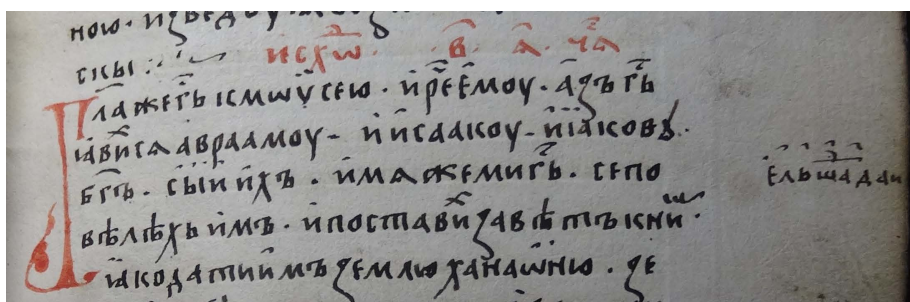 ною · и҆зве
скы : · исхѿ · в҃ · а҃ · ч҃а
Гл҃аже гь҃ к мѡѷсею · и҆ре҃ е҆моу · а҆зъ гь҃
ꙗ҆вихсѧ авраамоу – и҆ и҆саакоу – и҆ і҆аковꙋ ·
бг҃ъ · сыи и҆хъ · имѧ же ми гь҃ · се по
вѣлѣхь и҆мъ · и҆ поставих завѣтъ к ни ·
ꙗ҆ко дати и҆мъ землю ханаѡ҆ню · зе
е҆льшадаи